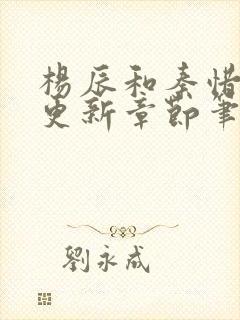 楊辰和秦惜
更新章節筆
劉永成